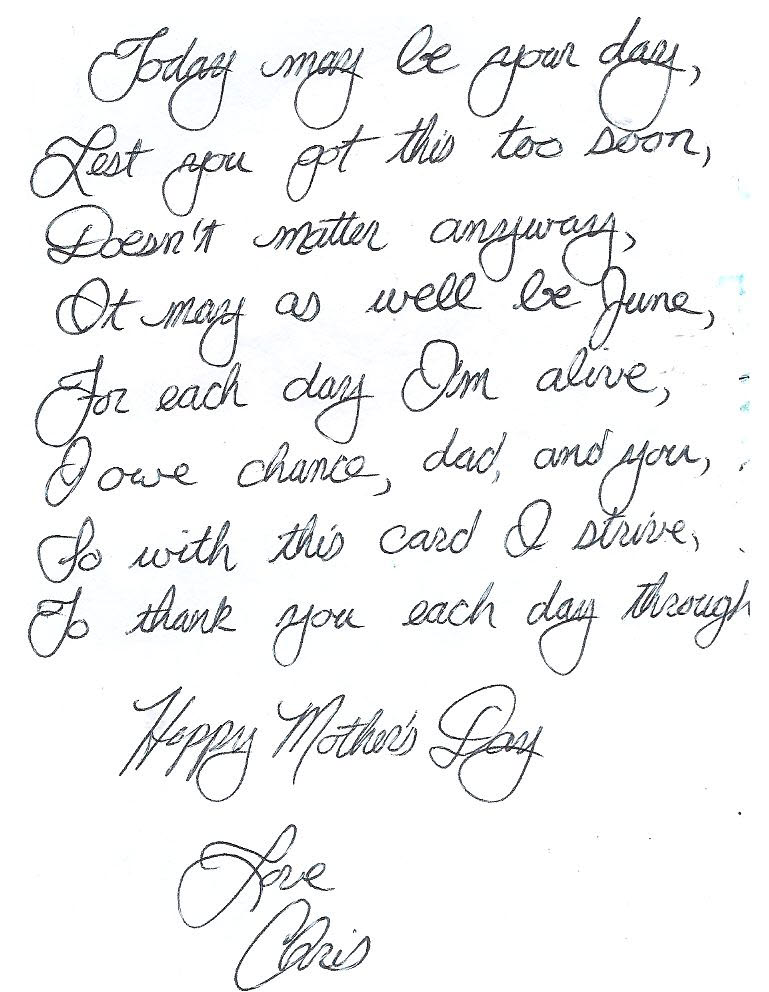 Today may be your day,
Lest you got this too soon,
Doesn't matter anyway,
It may as well be June,
For each day I'm alive,
I owe chance, dad, and you,
So with this card I strive,
To thank you each day through
Happy Mother's Day
Love
Chris